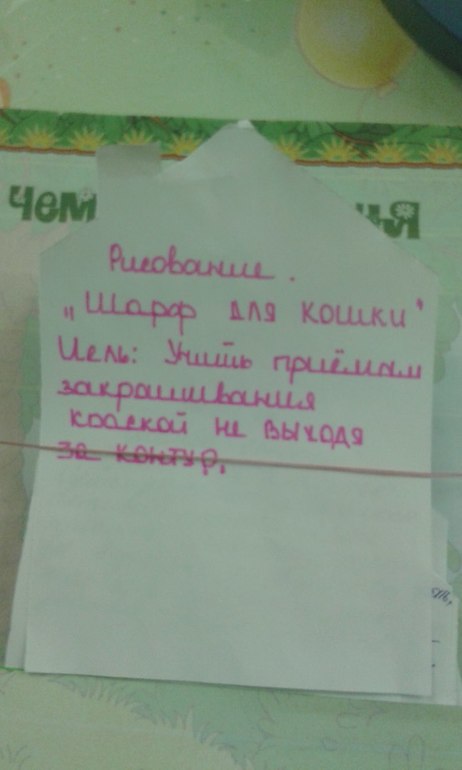 чем
Рисование.
„Шарф для кошки"
Цель: Учить приёмам
закрашивания
краской не выходя
за контур.